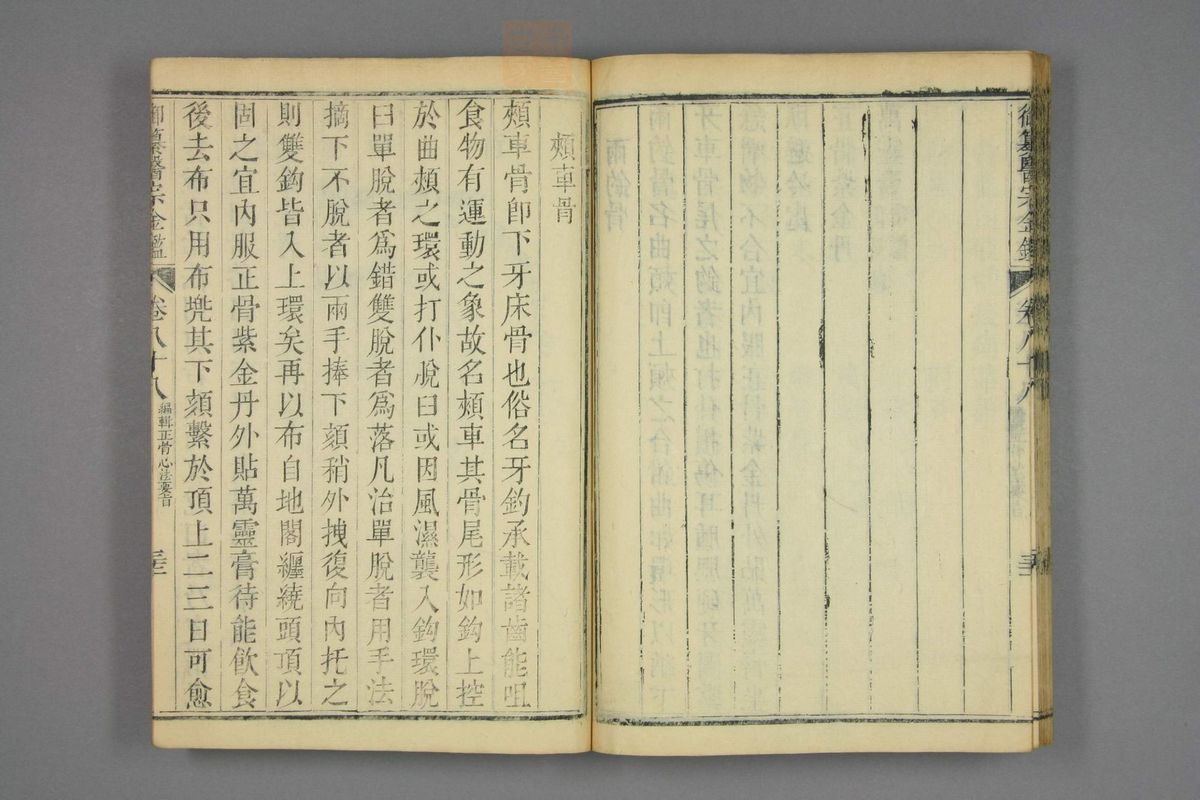 御纂醫宗金鑑
卷八十八
頰車骨
頰車骨卽下牙床骨也俗名牙鈎承載諸齒能咀
食物有運動之象故名頰車其骨尾形如鈎上控
於曲頰之環或打仆脫臼或因風濕襲入鈎環脫
臼單脫者爲錯雙脫者爲落凡治單脫者用手法
摘下不脫者以兩手捧下頦稍外拽復向內托之
則雙鈎皆入上環矣再以布自地閣纏繞頭頂以
固之宜內服正骨紫金丹外貼萬靈膏待能飲食
後去布只用布兜其下頦繫於頂上二三日可愈
御纂醫宗金鑑
卷八十八
編輯正骨心法要旨